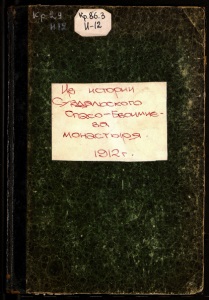 Кр 2.9
И 12
Кр. 86.3
И-12
Из истории
Суздальского
Спасо-Евфимие-
ва
монастыря.
1912 г.